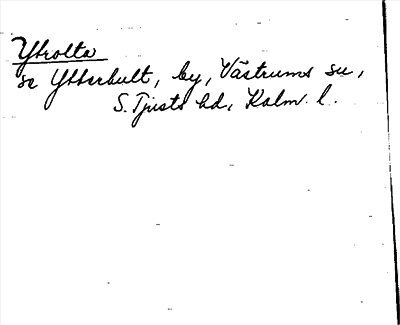 Ytrolta
se Ytterhult, by, Västrums sn,
S. Tjusts hd, Kalm. l.